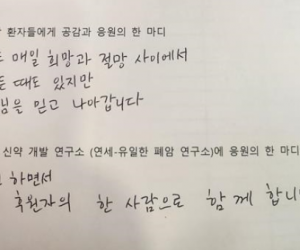 환자들에게 공감과 응원의 한 마디
매일 희망과 절망 사이에서
때도 있지만
믿고 나아갑니다
신약 개발 연구소 (연세-유일한 폐암 연구소)에 응원의 한 마디
하면서
후원자의 한 사람으로 함께 합니